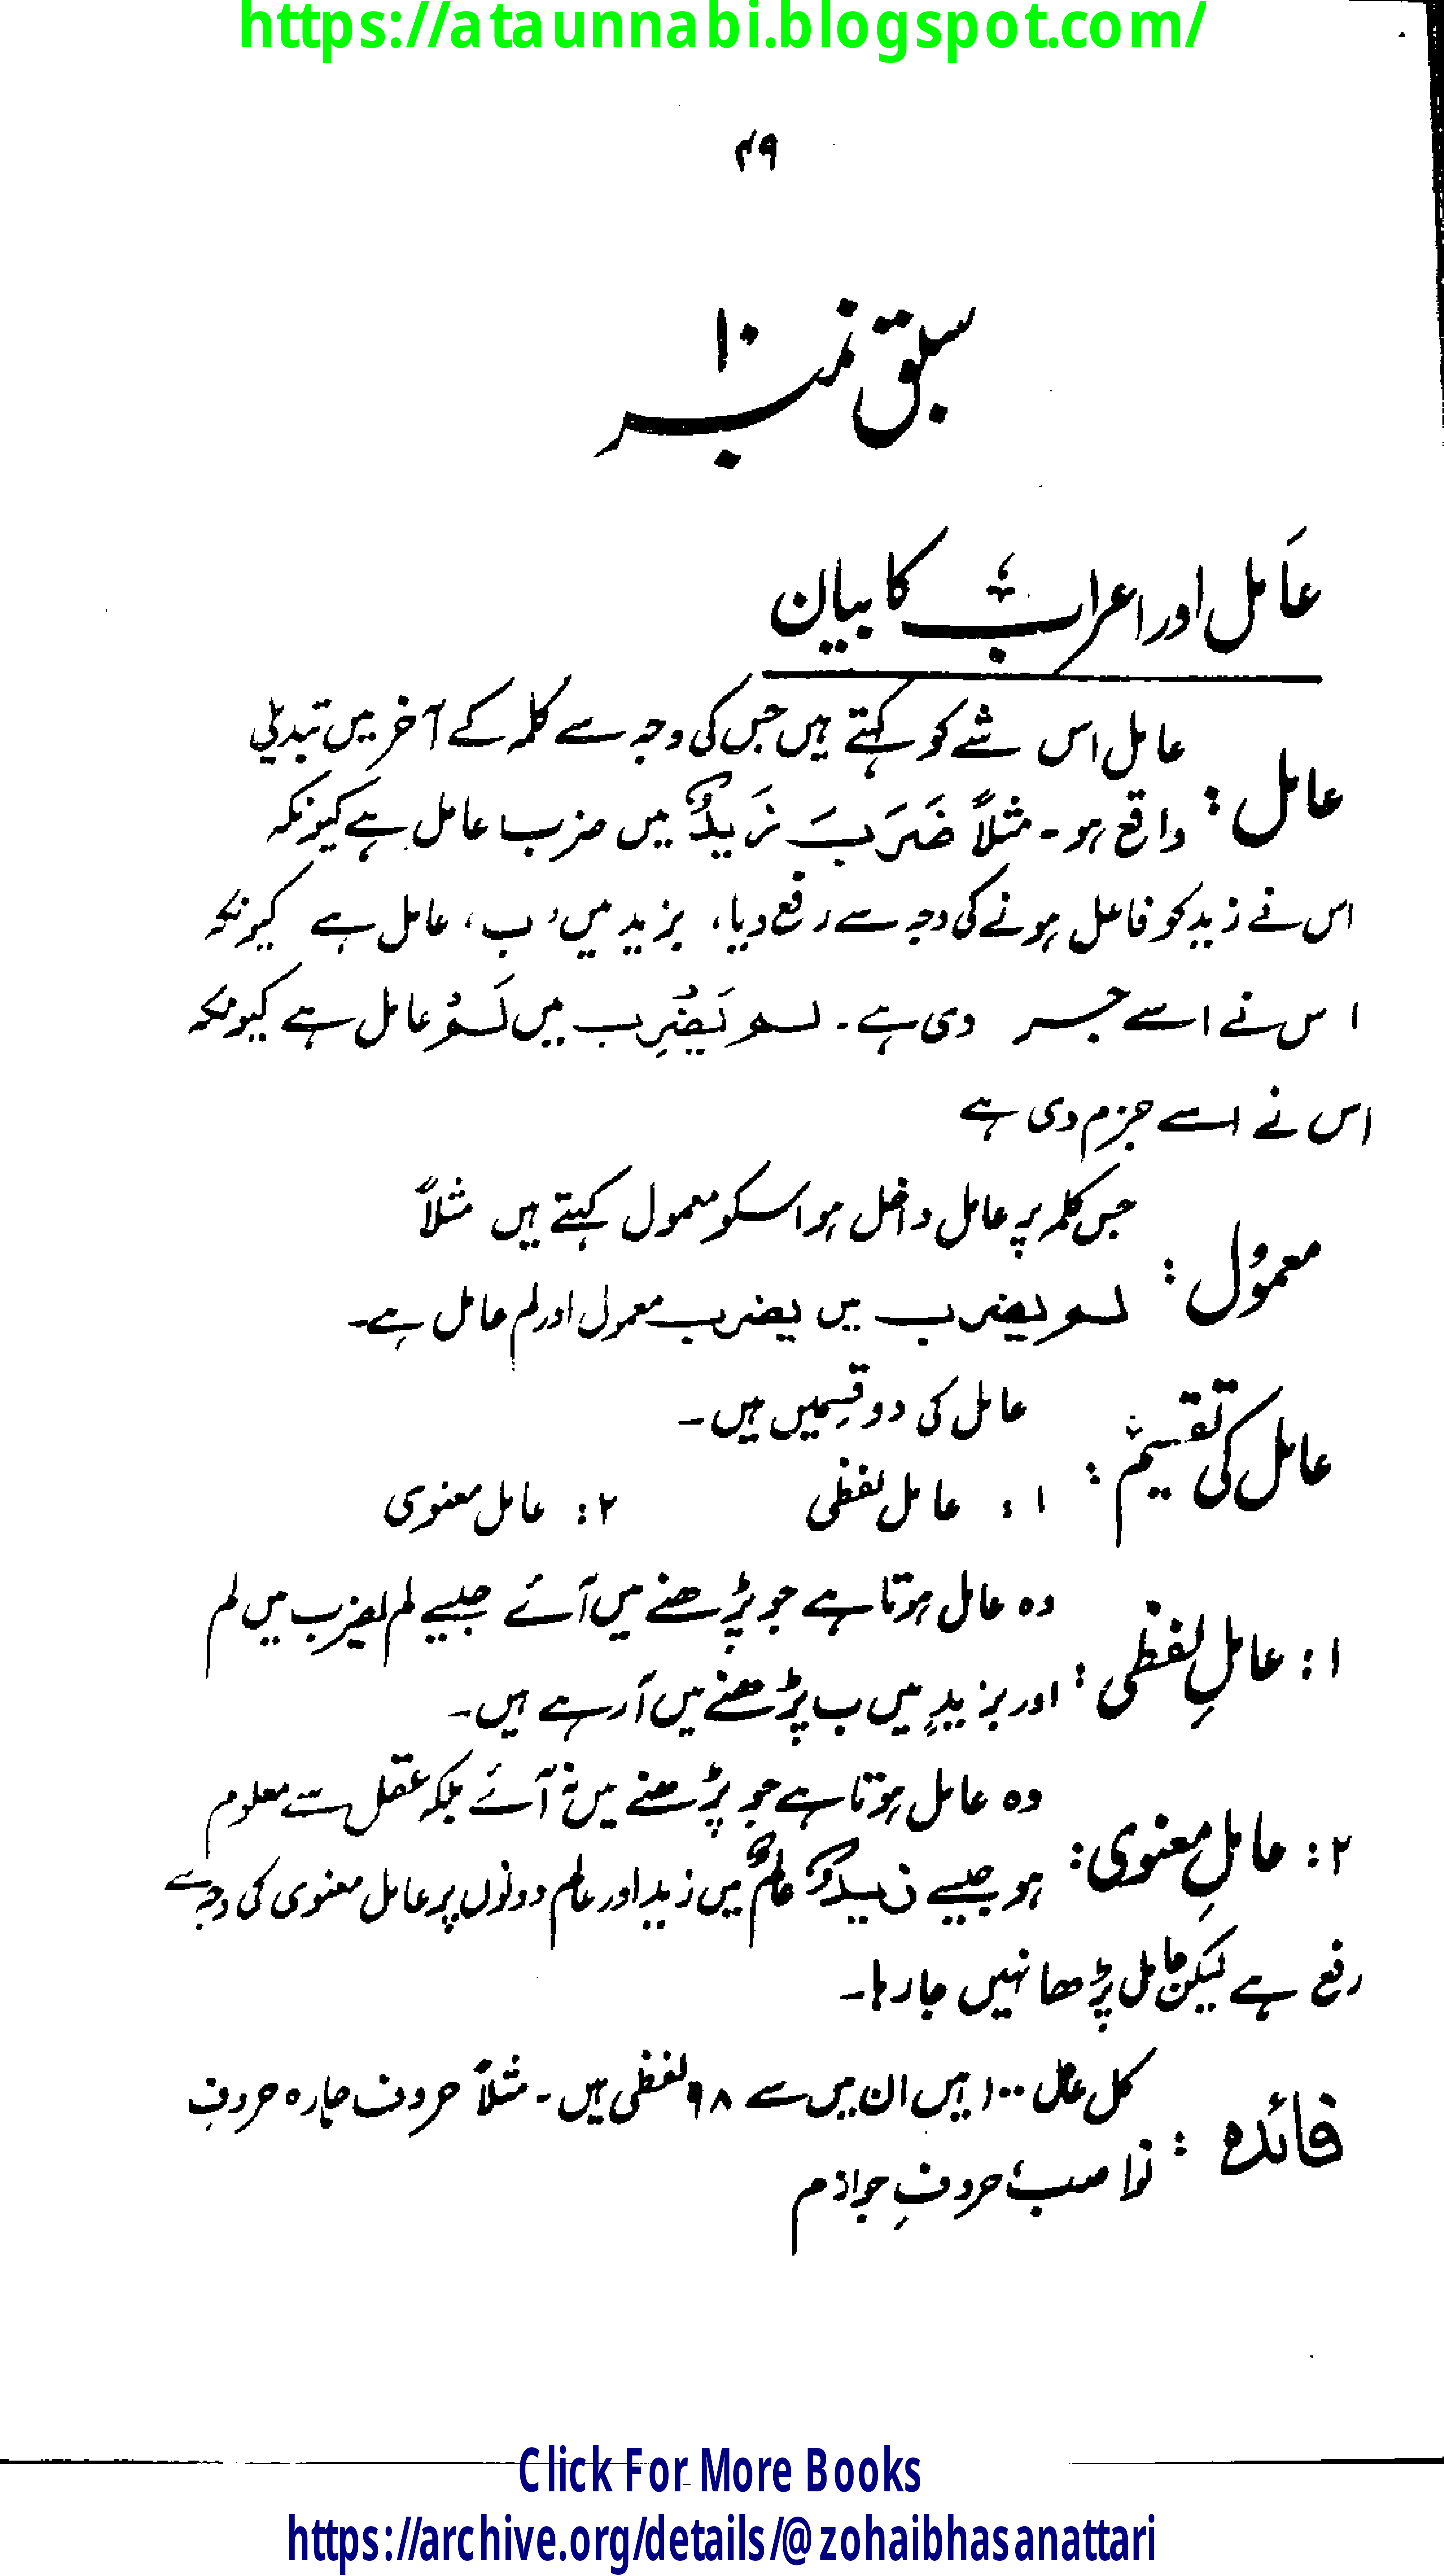 https://ataunnabi.blogspot.com/
۴۹
سبق نمبر ۱۰
عامل اور اعراب کا بیان
عامل: عامل اس شے کو کہتے ہیں جس کی وجہ سے کلمہ کے آخر میں تبدیلی
واقع ہو۔ مثلاً ضَرَبَ زَیدٌ میں ضرب عامل ہے کیونکہ
اس نے زید کو فاعل ہونے کی وجہ سے رفع دیا، بزید میں ’ب‘ عامل ہے کیونکہ
اس نے اسے جر دی ہے۔ لم یَضْرِب میں لَمْ عامل ہے کیونکہ
اس نے اسے جزم دی ہے
معمول: جس کلمہ پر عامل داخل ہو اسکو معمول کہتے ہیں مثلاً
لم یضرب میں یضرب معمول اور لم عامل ہے۔
عامل کی تقسیم: عامل کی دو قسمیں ہیں۔
۱: عامل لفظی ۲: عامل معنوی
۱: عاملِ لفظی: وہ عامل ہوتا ہے جو پڑھنے میں آئے جیسے لم یضرب میں لم
اور بزیدٍ میں ب پڑھنے میں آرہے ہیں۔
۲: عاملِ معنوی: وہ عامل ہوتا ہے جو پڑھنے میں نہ آئے بلکہ عقل سے معلوم
ہو جیسے زیدٌ عالمٌ میں زید اور عالم دونوں پر عامل معنوی کی وجہ سے
رفع ہے لیکن عامل پڑھا نہیں جا رہا۔
فائدہ: کل عامل ۱۰۰ ہیں ان میں سے ۹۸ لفظی ہیں۔ مثلاً حروف جارہ حروفِ
نواصب، حروفِ جوازم
Click For More Books
https://archive.org/details/@zohaibhasanattari